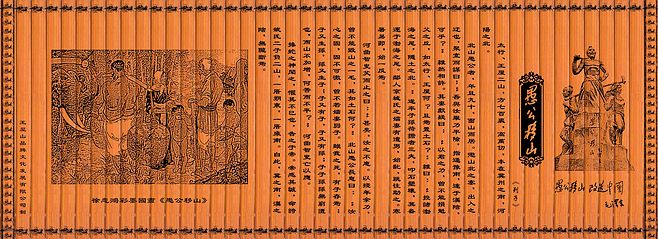 愚公移山
《列子》
太行、王屋二山，方七百里，高萬仞，本在冀州之南，河
陽之北。
北山愚公者，年且九十，面山而居。懲山北之塞，出入之
迂也，聚室而謀曰：吾與汝畢力平險，指通豫南，達于漢陰，
可乎？：雜然相許。其妻獻疑曰：：以君之力，曾不能損魁
父之丘，如太行、王屋何？且焉置土石？：雜曰：：投諸渤
海之尾，隱土之北。：遂率子孫荷擔者三夫，叩石墾壤，箕畚
運于渤海之尾。鄰人京城氏之孀妻有遺男，始齔，跳往助之。寒
暑易節，始一反焉。
河曲智叟笑而止之曰：：甚矣，汝之不惠。以殘年余力，
曾不能毀山之一毛，其如土石何？：北山愚公長息曰：：汝
心之固，固不可徹，曾不若孀妻弱子。雖我之死，有子存焉；
子又生孫，孫又生子；子又有子，子又有孫；子子孫孫無窮匱
也，而山不加增，何苦而不平？：河曲智叟亡以應。
操蛇之神聞之，懼其不已也，告之于帝。帝感其誠，命誇
娥氏二子負二山，一厝朔東，一厝雍南。自此，冀之南，漢之
陰，無隴斷焉。
愚公移山 改造中國
毛澤東
徐悲鴻彩墨國畫《愚公移山》